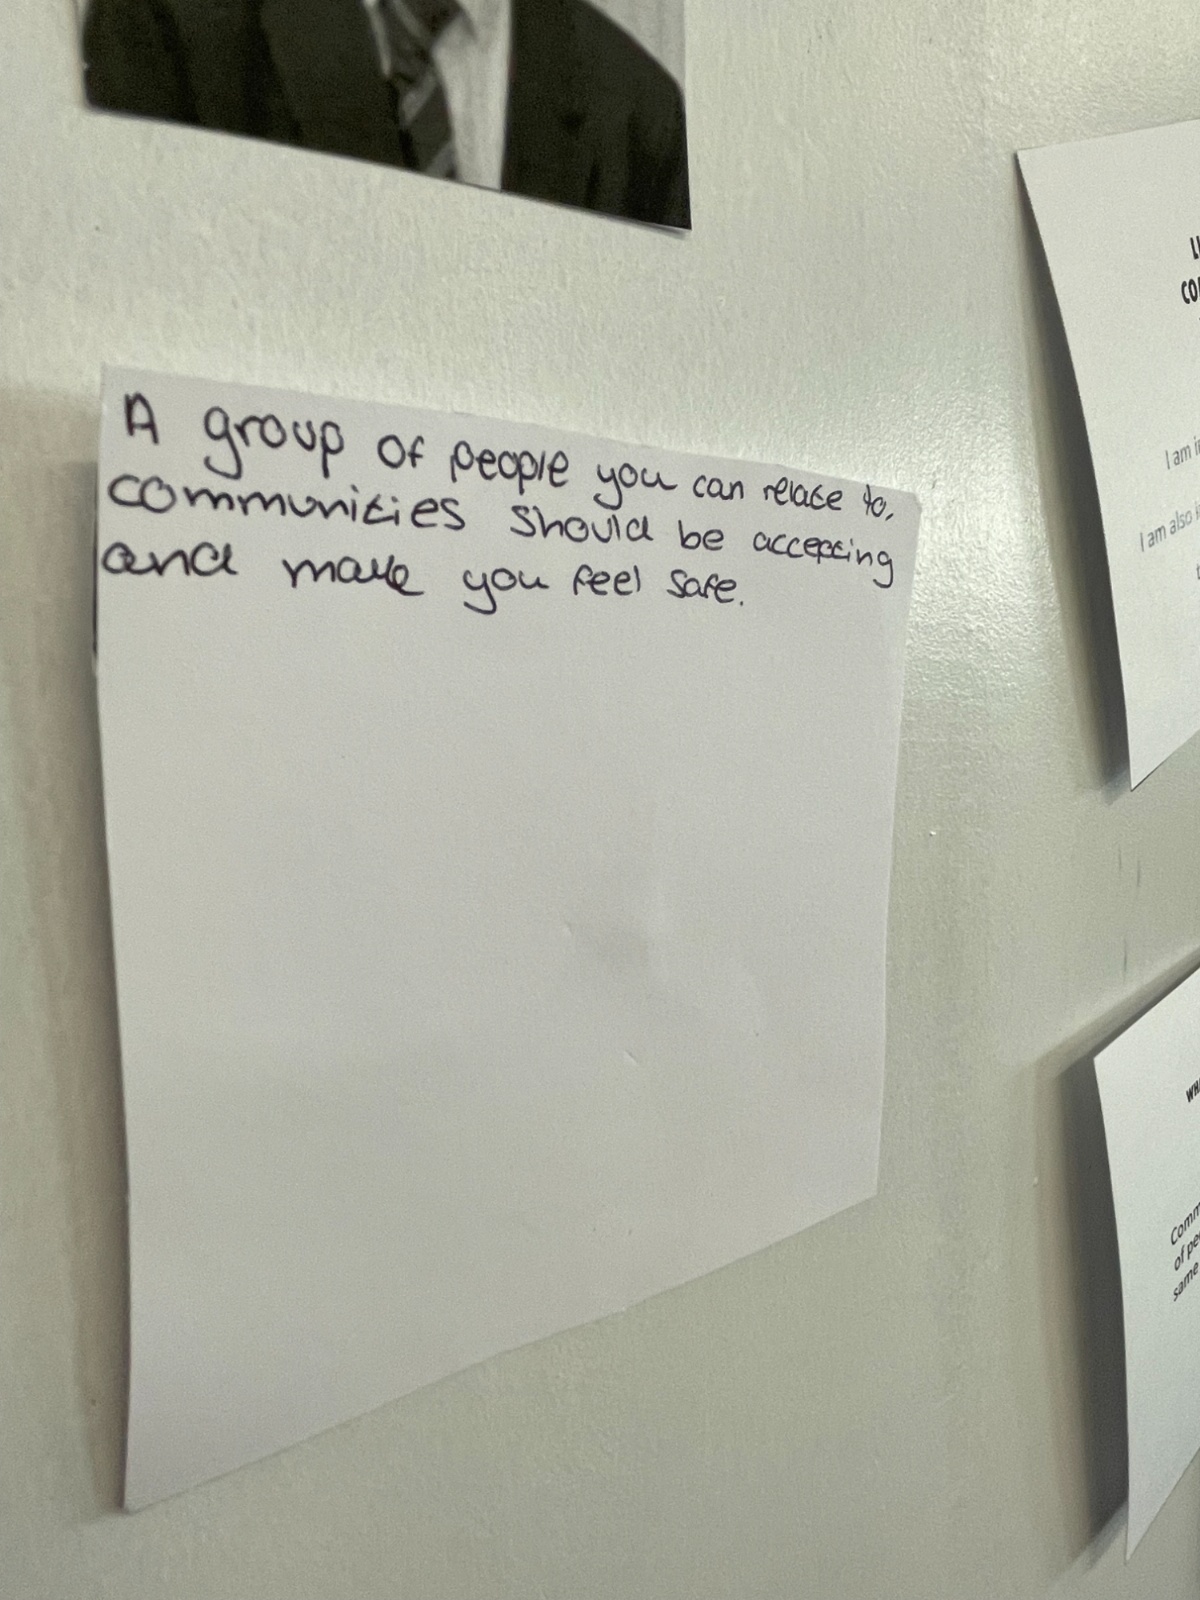 A group of people you can relate to,
communities should be accepting
and make you feel safe.
I am
I am also
Comm
of pe
same